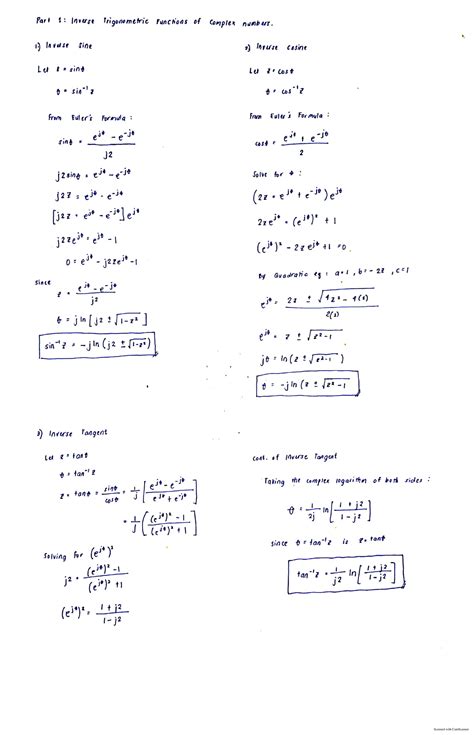 Part 1: Inverse Trigonometric Functions of Complex numbers.
1) Inverse Sine
Let z = sinθ
θ = sin⁻¹z
From Euler's Formula :
sinθ = (e^jθ - e^-jθ) / j2
j2sinθ = e^jθ - e^-jθ
j2z = e^jθ - e^-jθ
[j2z = e^jθ - e^-jθ] e^jθ
j2ze^jθ = e^jθ - 1
0 = e^jθ - j2ze^jθ - 1
since
z = (e^jθ - e^-jθ) / j2
θ = j ln [jz ± √(1-z²)]
sin⁻¹z = -j ln (jz ± √(1-z²))
2) Inverse Cosine
Let z = cosθ
θ = cos⁻¹z
From Euler's Formula :
cosθ = (e^jθ + e^-jθ) / 2
Solve for θ :
(2z = e^jθ + e^-jθ) e^jθ
2ze^jθ = (e^jθ)² + 1
(e^jθ)² - 2ze^jθ + 1 = 0
By Quadratic eq : a=1, b=-2z, c=1
e^jθ = 2z ± √(4z² - 4(1)) / 2(1)
e^jθ = z ± √(z²-1)
jθ = ln (z ± √(z²-1))
θ = -j ln (z ± √(z²-1))
3) Inverse Tangent
Let z = tanθ
θ = tan⁻¹z
z = tanθ = sinθ/cosθ = 1/j [(e^jθ - e^-jθ) / (e^jθ + e^-jθ)]
= 1/j [((e^jθ)² - 1) / ((e^jθ)² + 1)]
Solving for (e^jθ)²
jz = ((e^jθ)² - 1) / ((e^jθ)² + 1)
(e^jθ)² = (1 + jz) / (1 - jz)
cont. of Inverse Tangent
Taking the complex logarithm of both sides :
θ = 1/2j ln [(1 + jz) / (1 - jz)]
since θ = tan⁻¹z is z = tanθ
tan⁻¹z = 1/j2 ln [(1 + jz) / (1 - jz)]
Scanned with CamScanner